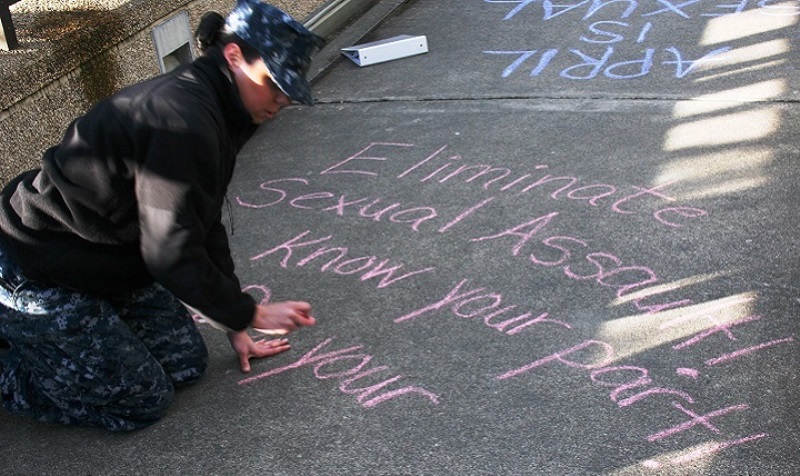 Eliminate
Sexual Assault!
Know your part!
your
APRIL
IS
SEXUAL